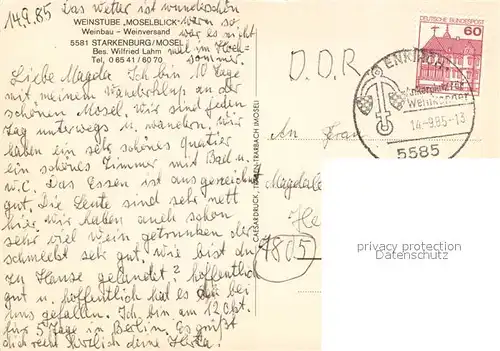 14.9.85 Das Wetter ist wunderschön
warm so
war es nicht
mal im Hoch-
sommer.
WEINSTUBE "MOSELBLICK"
Weinbau - Weinversand
5581 STARKENBURG/MOSEL
Bes. Wilfried Lahm
Tel. 0 65 41 / 60 70
Liebe Magda. Ich bin 10 Tage
mit meinem Wanderklub an der
schönen Mosel. Wir sind jeden
Tag unterwegs u. wandern. Wir
haben ein sehr schönes Quatier
ein schönes Zimmer mit Bad u.
W.C. Das Essen ist ausgezeichnet
gut. Die Leute sind sehr nett
hier. Wir haben auch schon
sehr viel Wein getrunken der
schmeckt sehr gut. Wie bist du
zu Hause gelandet? hoffentlich
gut u. hoffentlich hat es dir bei
uns gefallen. Ich bin am 12. Okt.
für 5 Tage in Berlin. Es grüßt
dich recht herzlich deine Herta.
CAESARDRUCK, TRABEN-TRARBACH (MOSEL)
DEUTSCHE BUNDESPOST
60
ENKIRCH
Weinkenner
14.-9.85-13
5585
D.D.R
An Frau
Magdale
He
7805
oldthing
www.oldthing.de